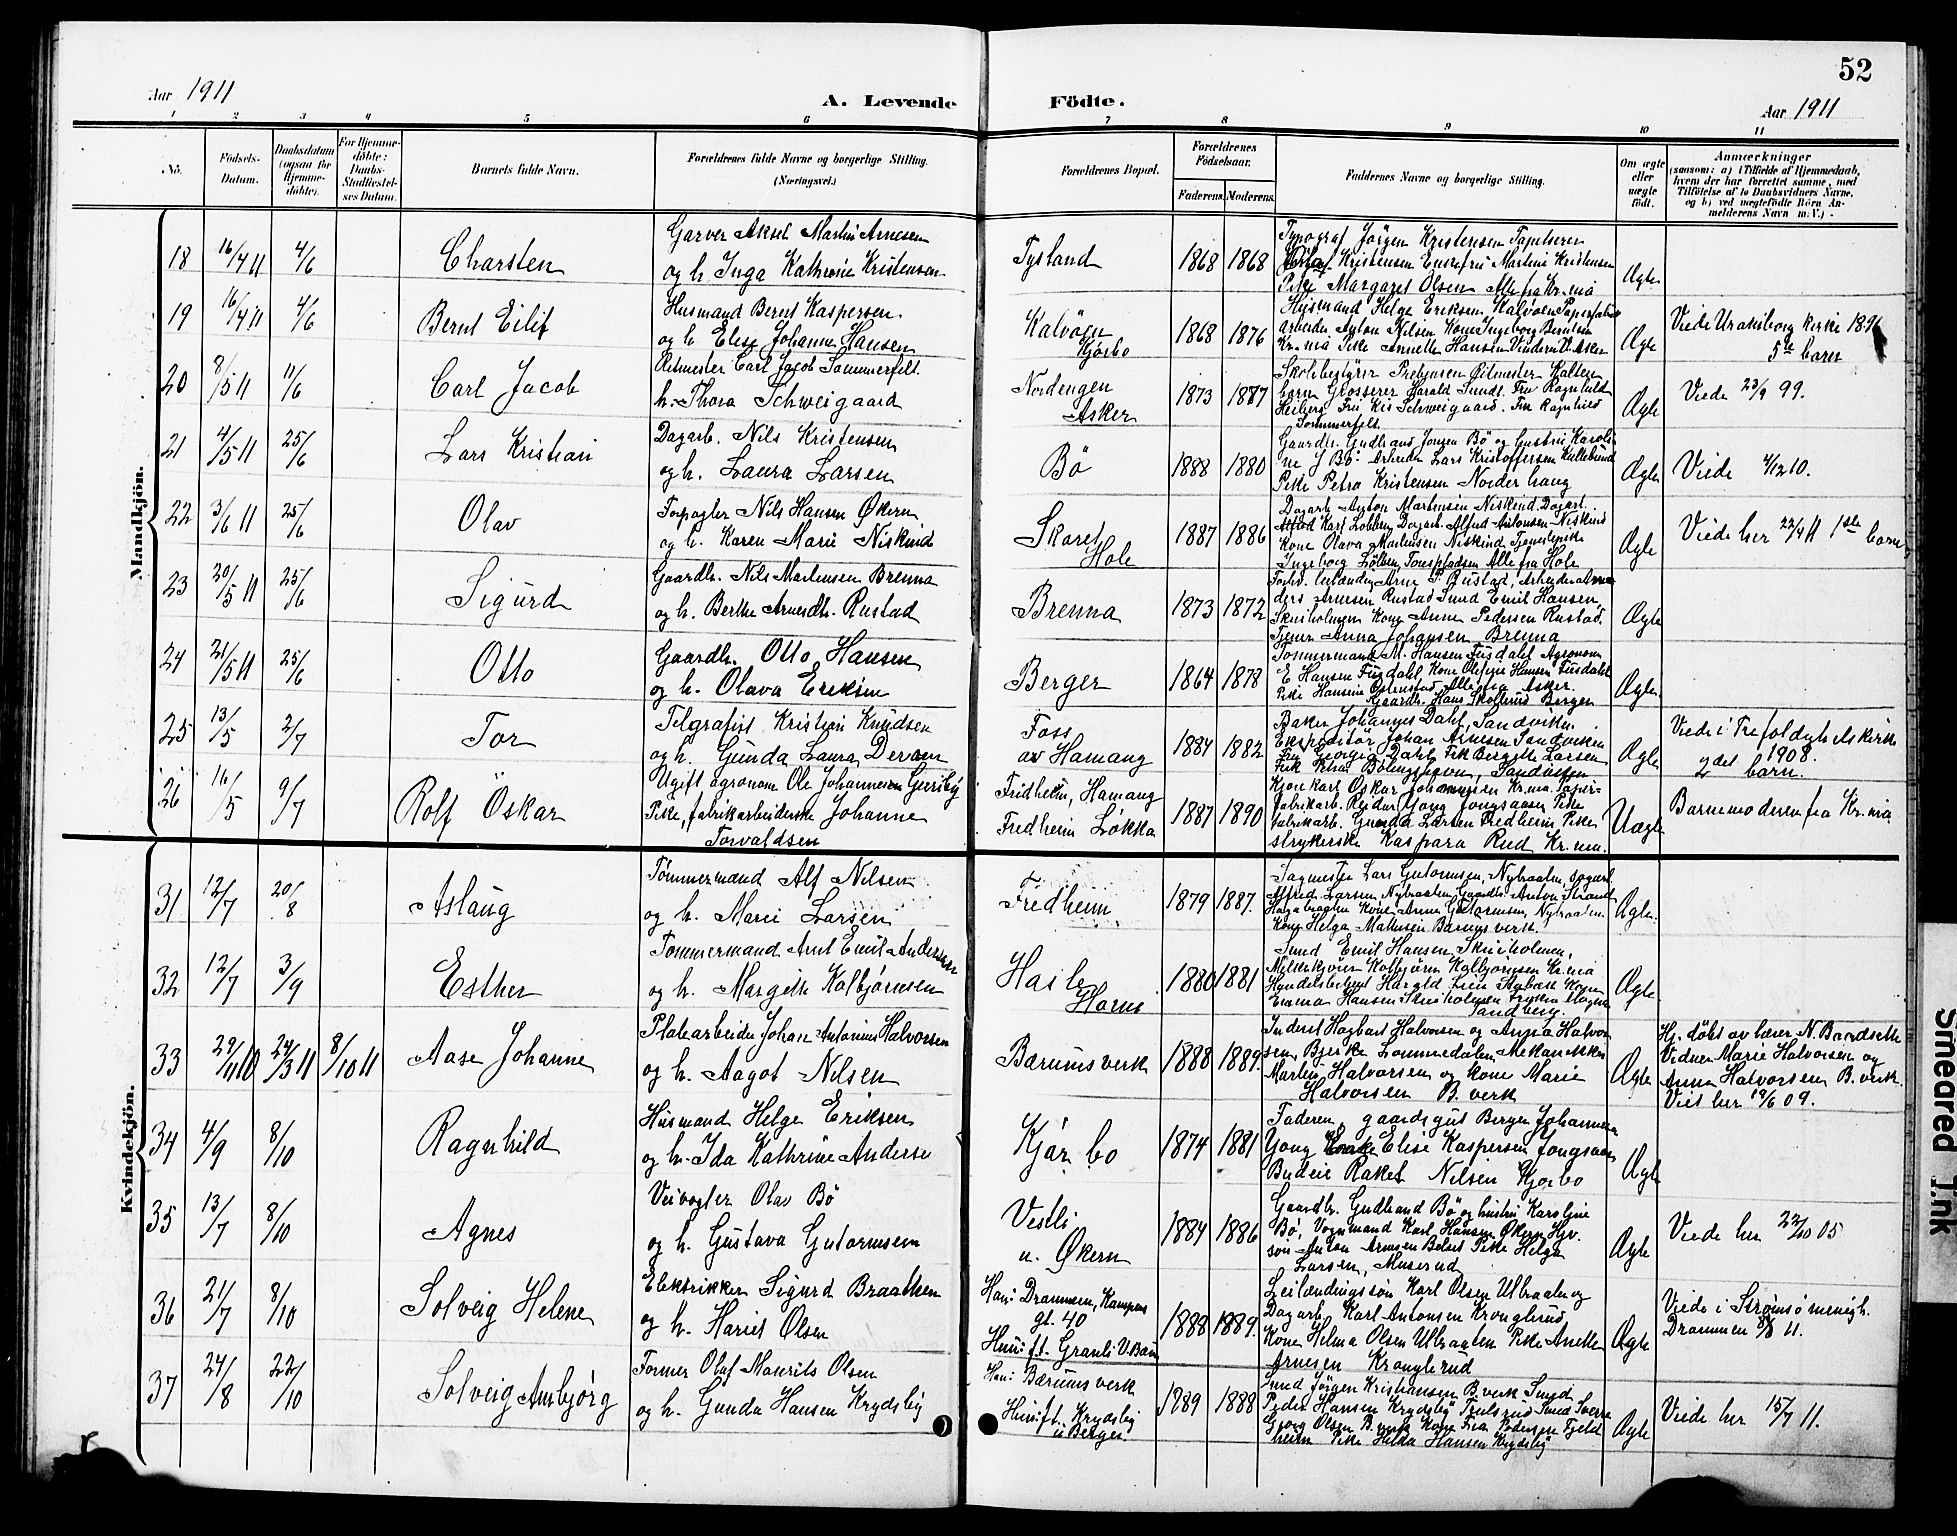 52
Aar 1911
A. Levende
Födte.
Aar 1911
1 2 3 4 5 6 7 8 9 10 11
No.
Födsels-
Datum.
Daabsdatum
(ogsaa for
Hjemme-
döbte).
For Hjemme-
döbte:
Daabs-
Stadfæstel-
ses Datum.
Barnets fulde Navn.
Forældrenes fulde Navne og borgerlige Stilling.
(Næringsvei.)
Forældrenes Bopæl.
Forældrenes
Födselsaar.
Faderens. Moderens.
Faddernes Navne og borgerlige Stilling.
Om ægte
eller
uægte
födt.
Anmærkninger
(saasom: a) i Tilfælde af Hjemmedaab,
hvem der har forrettet samme, med
Tilföielse af to Daabsvidners Navne,
og b) ved uægtefödte Börn An-
melderens Navn m. V.)
Mandkjön.
18 16/4 11 4/6 Charsten
Garver Aksel Martin Arnesen
og h. Inga Kathrine Kristensen
Tysland 1868 1868
Typograf Jörgen Kristensen Tapetserer
Kristensen Enkefru Martine Kristensen
Pike Margaret Olsen Alle fra Kr.ma
Ægte
19 16/4 11 4/6 Bernt Eilif
Husmand Bernt Kaspersen
og h. Elise Johanne Hansen
Kalvöen
Kjörbo
1868 1876
Husmand Helge Eriksen Kalvöen Papirfabrik
arbeider Anton Nilsen Kone Ingeborg Berntsen
Kr.ma Pike Annette Hansen Vinderen V. Aker
Ægte
Viede Uranienborg kirke 1896
5te barn
20 8/5 11 11/6 Carl Jacob
Ritmester Carl Jacob Sommerfelt
h. Thora Schweigaard
Nordengen
Asker
1873 1877
Skolebestyrer Prebensen Ritmester Kolten
born Grosserer Harald Sundt Fru Ragnhild
Heiberg Fru Kis Schweigaard. Frk Ragnhild
Sommerfelt.
Ægte
Viede 23/9 99.
21 4/5 11 25/6 Lars Kristian
Dagarb. Nils Kristensen
og h. Laura Larsen
Bö 1888 1880
Gaardb. Gudbrand Jonsen Bö og hustru Karoli-
ne J Bö. Arbeider Lars Kristoffersen Kullebund
Pike Petra Kristensen Norderhaug
Ægte
Viede 4/12 10.
22 3/6 11 25/6 Olav
Forpagter Nils Hansen Økern
og h. Karen Marie Niskind
Skaret
Hole
1887 1886
Dagarb. Anton Martensen Niskind Dagarb.
Karl Löbben Dagarb. Alfred Antonsen Niskind
Kone Olava Martensen Niskind Tjenestepike
Ingeborg Löbben Alle fra Hole
Ægte
Viede her 22/4 11 1ste barn
23 20/5 11 25/6 Sigurd
Gaardb. Nils Martensen Brenna
og h. Berthe Arnesdtr. Rustad
Brenna 1873 1872
Forhv. leilænding Arne P. Rustad, Arbeider An-
ders Arnesen Rustad Smed Emil Hansen,
Skuiholmen Kone Anne Pedersen Rustad.
Tjener Anna Johansen Brenna
Ægte
24 21/5 11 25/6 Otto
Gaardb. Otto Hansen
og h. Olava Eriksen
Berger 1864 1878
Tommermand M. Hansen Fusdahl Agronom
E Hansen Fusdahl, Kone Oline Hansen Fusdahl
Pike Hansine Østenstad Alle fra Asker.
Gaardb. Hans Skollerud Berger
Ægte.
25 13/5 2/7 Tor
Telgrafist Kristian Knudsen
og h. Gunda Laura
Foss
av Hamang
1884 1882
Baker Johannes Dahl, Sandviken.
Ekspeditör Johan Arnesen Sandviken
Fru Georgia Dahl Frk Bergette Larsen
Sandviken
Ægte
Viede i Trefoldighetskirken
1908.
2det barn.
26 16/5 9/7 Rolf Öskar
Ugift agronom Ole Johannesen
Pike, fabrikarbeiderske Johanne
Torvaldsen
Fridheim, Hamang
Fredheim Lökka
1887 1890
Kjore Karl Oskar Johannesen Kr.ma. Papir-
fabrikarb. Reidar Yong Jongsaasen Pike
fabrikarb. Gunda Larsen Fredheim Pike
strykerske Kaspara Rud Kr.ma.
Uægte
Barnemoderen fra Kr.ma
Kvindekjön.
31 12/7 20/8 Aslaug
Tömmermand Alf Nilsen
og h. Marie Larsen
Fredheim 1879 1887.
Sagmester Lars Gutormsen, Nybraaten,
Alfred Larsen, Nybraaten, Gaardb. Anton Strand
Hagabraaten Kone Anna Gutormsen, Nybraaten.
Kone Helga Mathisen Bærums verk.
Ægte.
32 12/7 3/9 Esther
Tommermand Arnt Emil Andersen
og h. Margith Kolbjørnsen
Hasle
Horni
1880 1881
Smed Emil Hansen, Skuiholmen,
Melkekjörer Kolbjörn Kolbjornsen Kr.ma
Handelsbetjent Harald Lien Stabæk Kone
Emma Hansen Skuiholmen Frøken Magna
Sandberg.
Ægte
33 29/11 10 24/3 11 8/10 11 Aase Johanne
Platearbeider Johan Antonius Halvorsen
og h. Aagot Nilsen
Bærums verk 1888 1889.
Inderst Hagbart Halvorsen og Anna Halvor
sen Bjerke Lommedalen, Mekaniker
Martin Halvorsen og kone Marie
Halvorsen B. verk
Ægte
Hj. döbt av lærer N. Bardseth
Vidner Marie Halvorsen og
Anna Halvorsen B. verk.
Viet her 19/6 09.
34 4/9 8/10 Ragnhild
Husmand Helge Eriksen
og h. Ida Kathrine Andersen
Kjörbo 1874 1881
Faderen, gaardsgut Berger Johannesen
Yong Enke Elise Kaspersen Jongsaasen
Budeie Rakel Nilsen Kjorbo
Ægte
35 13/7 8/10 Agnes
Veivogter Olav Bö
og h. Gustava Gutormsen
Vestli
u. Økern
1884 1886
Gaardb. Gudbrand Bö og hustru Karoline
Bö, Vognmand Karl Hansen Økern Hjv.
sön Anton Arnesen Pike Helga
Larsen, Muserud
Ægte
Viede her 22/10 05
36 21/7 8/10 Solveig Helene
Elektrikker Sigurd Braathen
og h. Hariet Olsen
Han: Drammen, Kampens
gt. 40
Hun: ft. Granli V. Bær.
1888 1889.
Leilændingsön Karl Olsen Ulbraaten og
Dagarb. Karl Antonsen Kronglerud,
Kone Helma Olsen Ulbraaten Pike Anette
Arnesen Kronglerud
Ægte
Viede i Strømsö menigh.
Drammen 5/8 11.
37 24/8 22/10 Solveig Ambjörg
Former Olaf Maurits Olsen
og h. Gunda Hansen Krydsby
Han: Bærums verk
Hun: ft. Krydsby
u Berger.
1889 1888
Smed Jörgen Kristiansen B. verk Smed
Peder Hansen Krydsby Smed Sverre
Georg Olsen B. verk Kone Fra Pedersen Fjeld
heim Pike Hilda Hansen Krydsby
Ægte
Viede her 15/7 11.
Smeared Ink